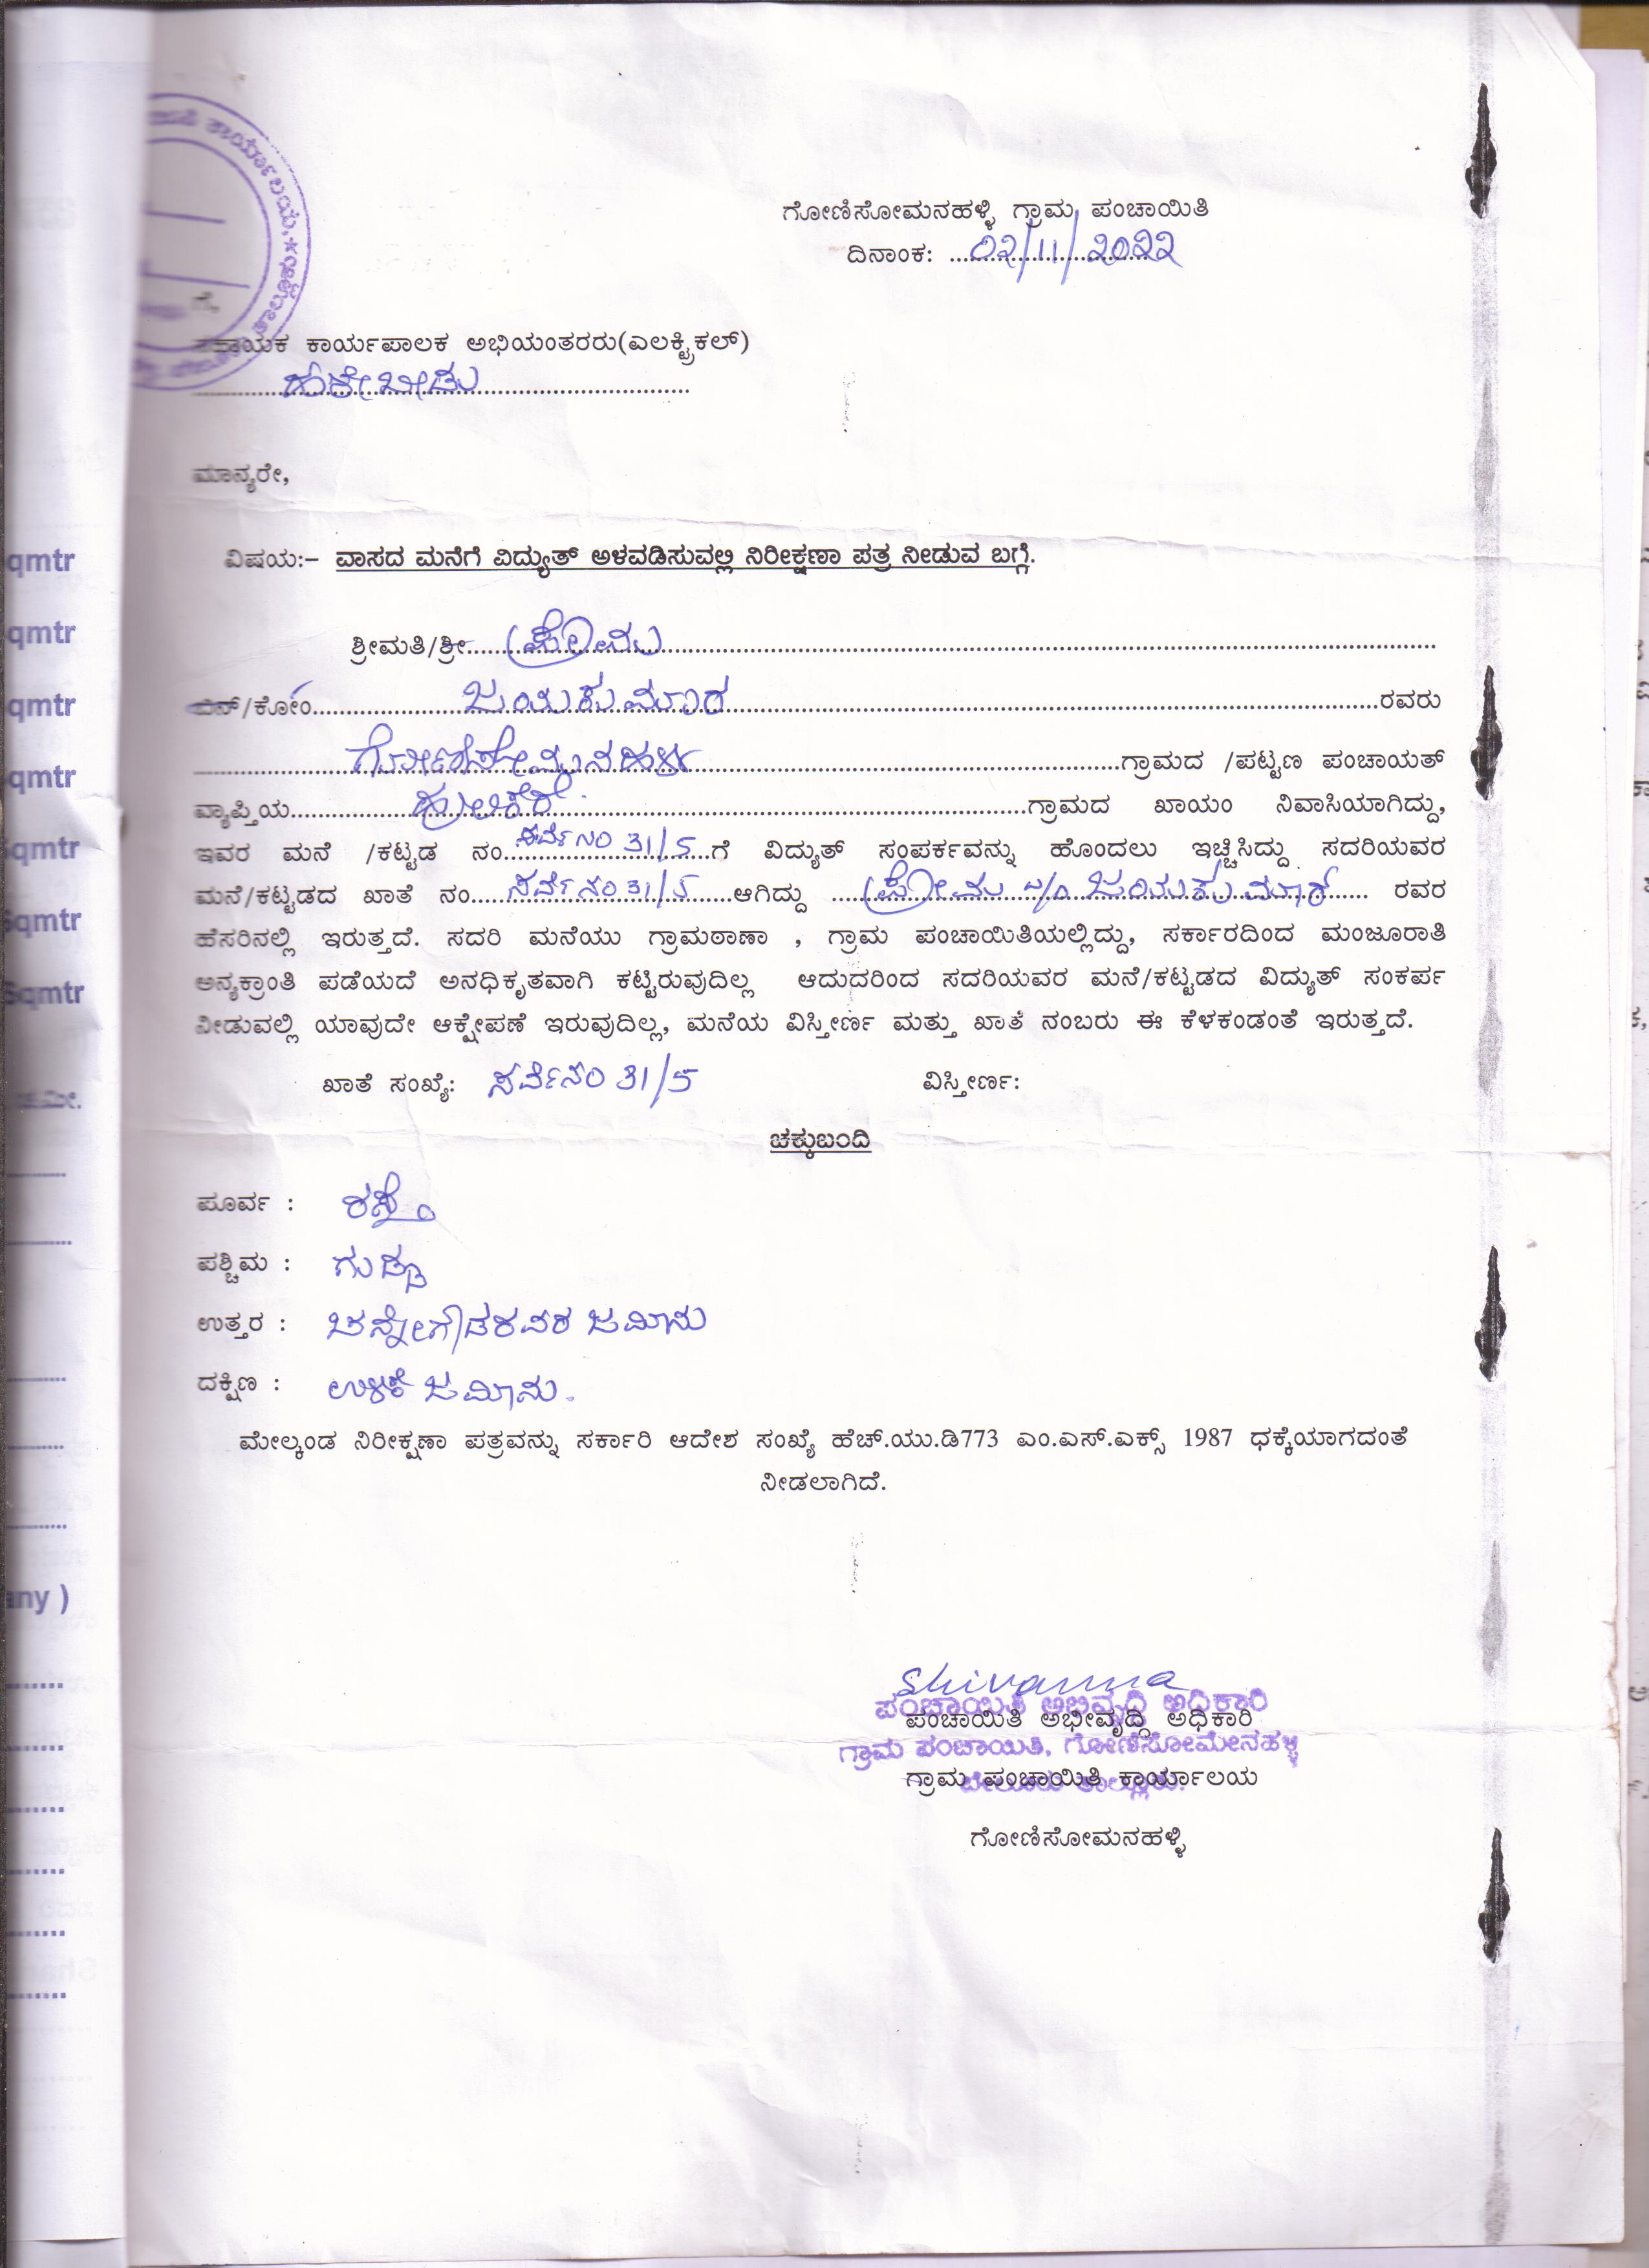 ಗೋಣಿಸೋಮನಹಳ್ಳಿ ಗ್ರಾಮ ಪಂಚಾಯಿತಿ
ದಿನಾಂಕ: 02/11/2022
ಗೆ,
ಸಹಾಯಕ ಕಾರ್ಯಪಾಲಕ ಅಭಿಯಂತರರು(ಎಲಕ್ಟ್ರಿಕಲ್)
ಹಳೇಬೀಡು
ಮಾನ್ಯರೇ,
ವಿಷಯ:– ವಾಸದ ಮನೆಗೆ ವಿದ್ಯುತ್ ಅಳವಡಿಸುವಲ್ಲಿ ನಿರೀಕ್ಷಣಾ ಪತ್ರ ನೀಡುವ ಬಗ್ಗೆ.
ಶ್ರೀಮತಿ/ಶ್ರೀ ಪ್ರೇಮ
ಬಿನ್/ಕೋಂ ಜಯಕುಮಾರ ರವರು
ಗೋಣಿಸೋಮನಹಳ್ಳಿ ಗ್ರಾಮದ /ಪಟ್ಟಣ ಪಂಚಾಯತ್
ವ್ಯಾಪ್ತಿಯ ಹುಲಿಕೆರೆ ಗ್ರಾಮದ ಖಾಯಂ ನಿವಾಸಿಯಾಗಿದ್ದು,
ಇವರ ಮನೆ /ಕಟ್ಟಡ ನಂ ಸರ್ವೆ ನಂ 31/5 ಗೆ ವಿದ್ಯುತ್ ಸಂಪರ್ಕವನ್ನು ಹೊಂದಲು ಇಚ್ಚಿಸಿದ್ದು ಸದರಿಯವರ
ಮನೆ/ಕಟ್ಟಡದ ಖಾತೆ ನಂ ಸರ್ವೆ ನಂ 31/5 ಆಗಿದ್ದು ಪ್ರೇಮ w/o ಜಯಕುಮಾರ ರವರ
ಹೆಸರಿನಲ್ಲಿ ಇರುತ್ತದೆ. ಸದರಿ ಮನೆಯು ಗ್ರಾಮಠಾಣಾ , ಗ್ರಾಮ ಪಂಚಾಯಿತಿಯಲ್ಲಿದ್ದು, ಸರ್ಕಾರದಿಂದ ಮಂಜೂರಾತಿ
ಅನ್ಯಕ್ರಾಂತಿ ಪಡೆಯದೆ ಅನಧಿಕೃತವಾಗಿ ಕಟ್ಟಿರುವುದಿಲ್ಲ ಆದುದರಿಂದ ಸದರಿಯವರ ಮನೆ/ಕಟ್ಟಡದ ವಿದ್ಯುತ್ ಸಂಕರ್ಪ
ನೀಡುವಲ್ಲಿ ಯಾವುದೇ ಆಕ್ಷೇಪಣೆ ಇರುವುದಿಲ್ಲ, ಮನೆಯ ವಿಸ್ತೀರ್ಣ ಮತ್ತು ಖಾತೆ ನಂಬರು ಈ ಕೆಳಕಂಡಂತೆ ಇರುತ್ತದೆ.
ಖಾತೆ ಸಂಖ್ಯೆ: ಸರ್ವೆ ನಂ 31/5 ವಿಸ್ತೀರ್ಣ:
ಚಕ್ಕುಬಂದಿ
ಪೂರ್ವ : ರಸ್ತೆ
ಪಶ್ಚಿಮ : ಗುಡ್ಡ
ಉತ್ತರ : ಚನ್ನೇಗೌಡರವರ ಜಮೀನು
ದಕ್ಷಿಣ : ಉಳಿಕೆ ಜಮೀನು.
ಮೇಲ್ಕಂಡ ನಿರೀಕ್ಷಣಾ ಪತ್ರವನ್ನು ಸರ್ಕಾರಿ ಆದೇಶ ಸಂಖ್ಯೆ ಹೆಚ್.ಯು.ಡಿ773 ಎಂ.ಎಸ್.ಎಕ್ಸ್ 1987 ಧಕ್ಕೆಯಾಗದಂತೆ
ನೀಡಲಾಗಿದೆ.
Shivanna
ಪಂಚಾಯಿತಿ ಅಭಿವೃದ್ಧಿ ಅಧಿಕಾರಿ
ಪಂಚಾಯಿತಿ ಅಭೀವೃದ್ಧಿ ಅಧಿಕಾರಿ
ಗ್ರಾಮ ಪಂಚಾಯಿತಿ, ಗೋಣಿಸೋಮೇನಹಳ್ಳಿ
ಗ್ರಾಮ ಪಂಚಾಯಿತಿ ಕಾರ್ಯಾಲಯ
ಬೇಲೂರು ತಾಲ್ಲೂಕು.
ಗೋಣಿಸೋಮನಹಳ್ಳಿ
qmtr
qmtr
qmtr
qmtr
qmtr
qmtr
Sqmtr
any )